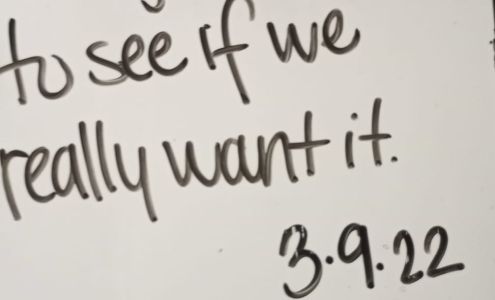 to see if we
really want it.
3.9.22